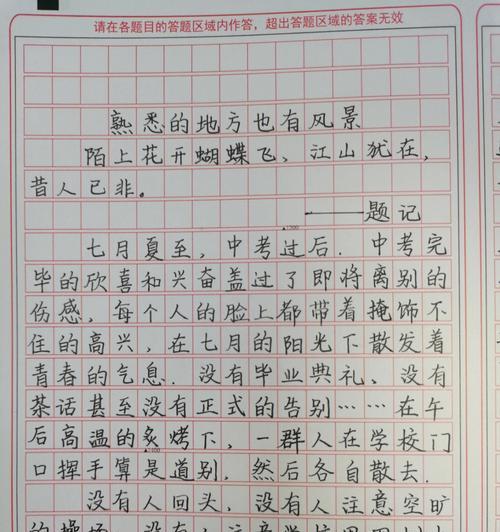 请在各题目的答题区域内作答，超出答题区域的答案无效
熟悉的地方也有风景
陌上花开蝴蝶飞、江山犹在，
昔人已非。
——题记
七月夏至，中考过后．中考完
毕的欣喜和兴奋盖过了即将离别的
伤感，每个人的脸上都带着掩饰不
住的高兴，在七月的阳光下散发着
青春的气息．没有毕业典礼、没有
茶话甚至没有正式的告别……在午
后高温的炙烤下，一群人在学校门
口挥手算是道别，然后各自散去．
没有人回头，没有人注意空旷